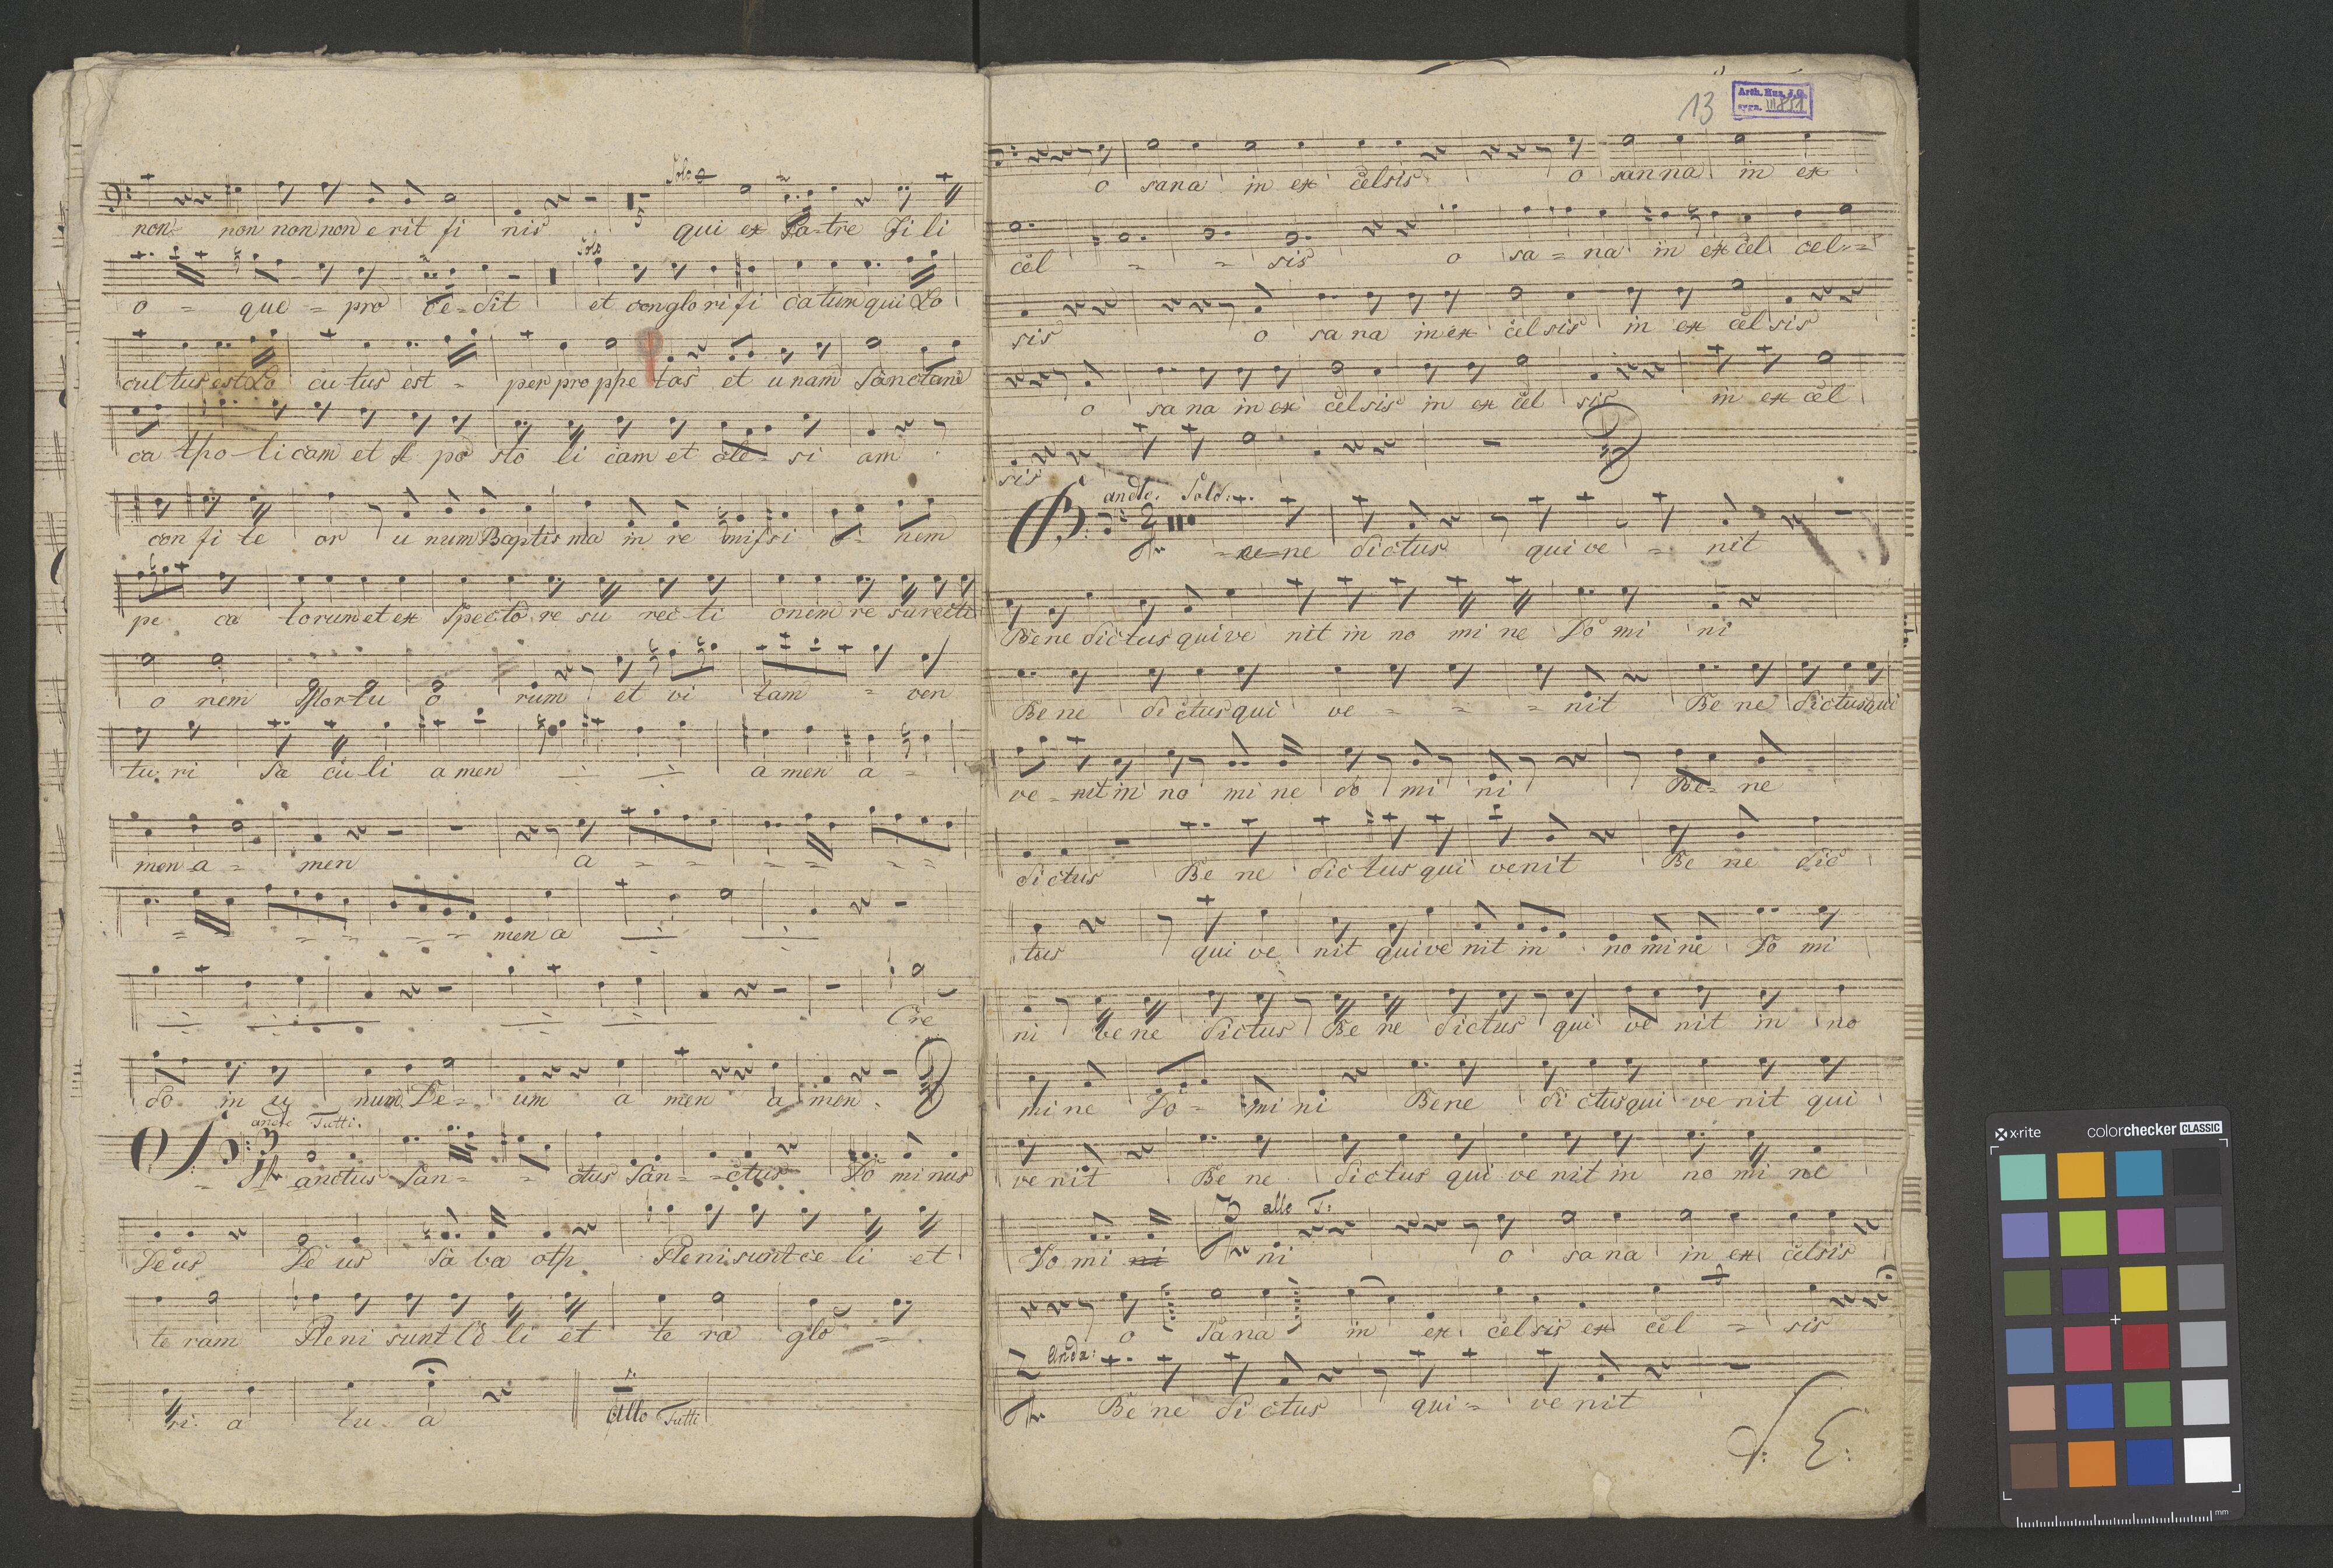 Solo
non non non non e rit fi nis qui ex Pa-tre Fi li
Solo
o = que = pro ce=dit et conglorifi catum qui Lo
cultus est Lo cu tus est = per pro phe tas et unam Sanctam
ca tho-licam et A po sto li cam et cle- si am
con fi te or u num Baptis ma in re mifsi o= nem
pe ca torum et ex Specto re su rec-ti onem re surecti
o nem Mortu o rum et vi tam = ven
tu. ri Sa cu li a men a men a =
men a = men a = = = = = = =
= = = = = = men a
Cre
do in u num De= um a men a men.
andte Tutti.
Sanctus San= = ctus San= =ctus Do minus
Deus De us Sa ba oth Pleni sunt ce li et
te ram Pleni sunt Ce li et te ra glo =
ri a tu. a Allo Tutti
13
Arch. Muz. J.G.
sygn. III 851
o sana in ex celsis o sanna in ex
cel = = sis o sa = na in excel cel-=
sis o sa na in ex celsis in ex celsis
o sa na in ex celsis in ex cel sis in ex cel
sis
andte. Solo.
2 =ne dictus qui ve = nit
Bene dictus qui ve nit in no mi ne Do mi ni
Be ne dictus qui ve = = = nit Be ne dictus qui
ve - nit in no mi ne do mi ni Be= ne
dictus Be ne dictus qui venit Be ne dic
tus qui ve nit qui ve nit in no mi ne Do mi
ni be ne dictus Be ne dictus qui ve nit in no
mi ne Do= mi ni Bene dictus qui ve nit qui
ve nit Be ne dictus qui ve nit in no mi ne
3 allo T:
Do mi ni ni o sa na in ex celsis
o Sana in ex celsis ex cel = sis
Anda:
2 Be ne dictus qui= ve nit
d: E:
x-rite colorchecker CLASSIC
mm